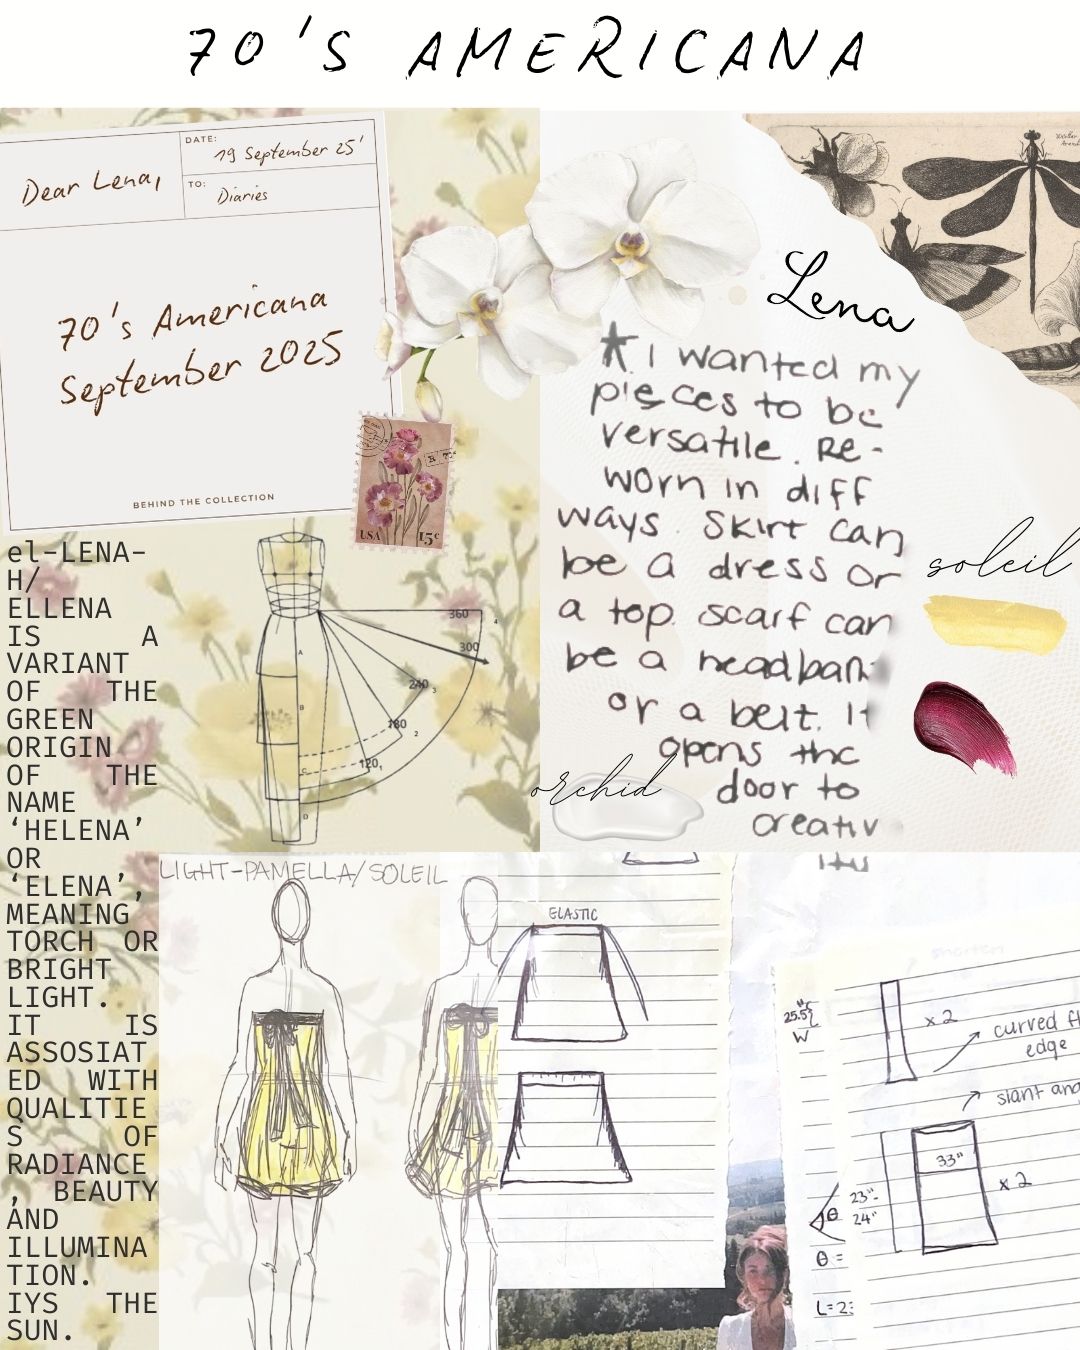 70's AMERICANA
Dear Lena,
DATE:
19 September 25'
TO:
Diaries
70's Americana
September 2025
BEHIND THE COLLECTION
USA
15c
el-LENA-
H/
ELLENA
IS A
VARIANT
OF THE
GREEN
ORIGIN
OF THE
NAME
‘HELENA’
OR
‘ELENA’,
MEANING
TORCH OR
BRIGHT
LIGHT.
IT IS
ASSOSIAT
ED WITH
QUALITIE
S OF
RADIANCE
, BEAUTY
AND
ILLUMINA
TION.
IYS THE
SUN.
360
4
300
240
3
180
2
120
1
A
B
C
D
Lena
* I wanted my
pieces to be
versatile. Re-
worn in diff
ways. Skirt can
be a dress or
a top. scarf can
be a headban
or a belt. It
opens the
door to
creativ
ity
soleil
orchid
LIGHT-PAMELLA/SOLEIL
ELASTIC
shorten
25.5"
W
x2
curved fl
edge
slant and
33"
x2
23"-
24"
θ
θ =
L=23